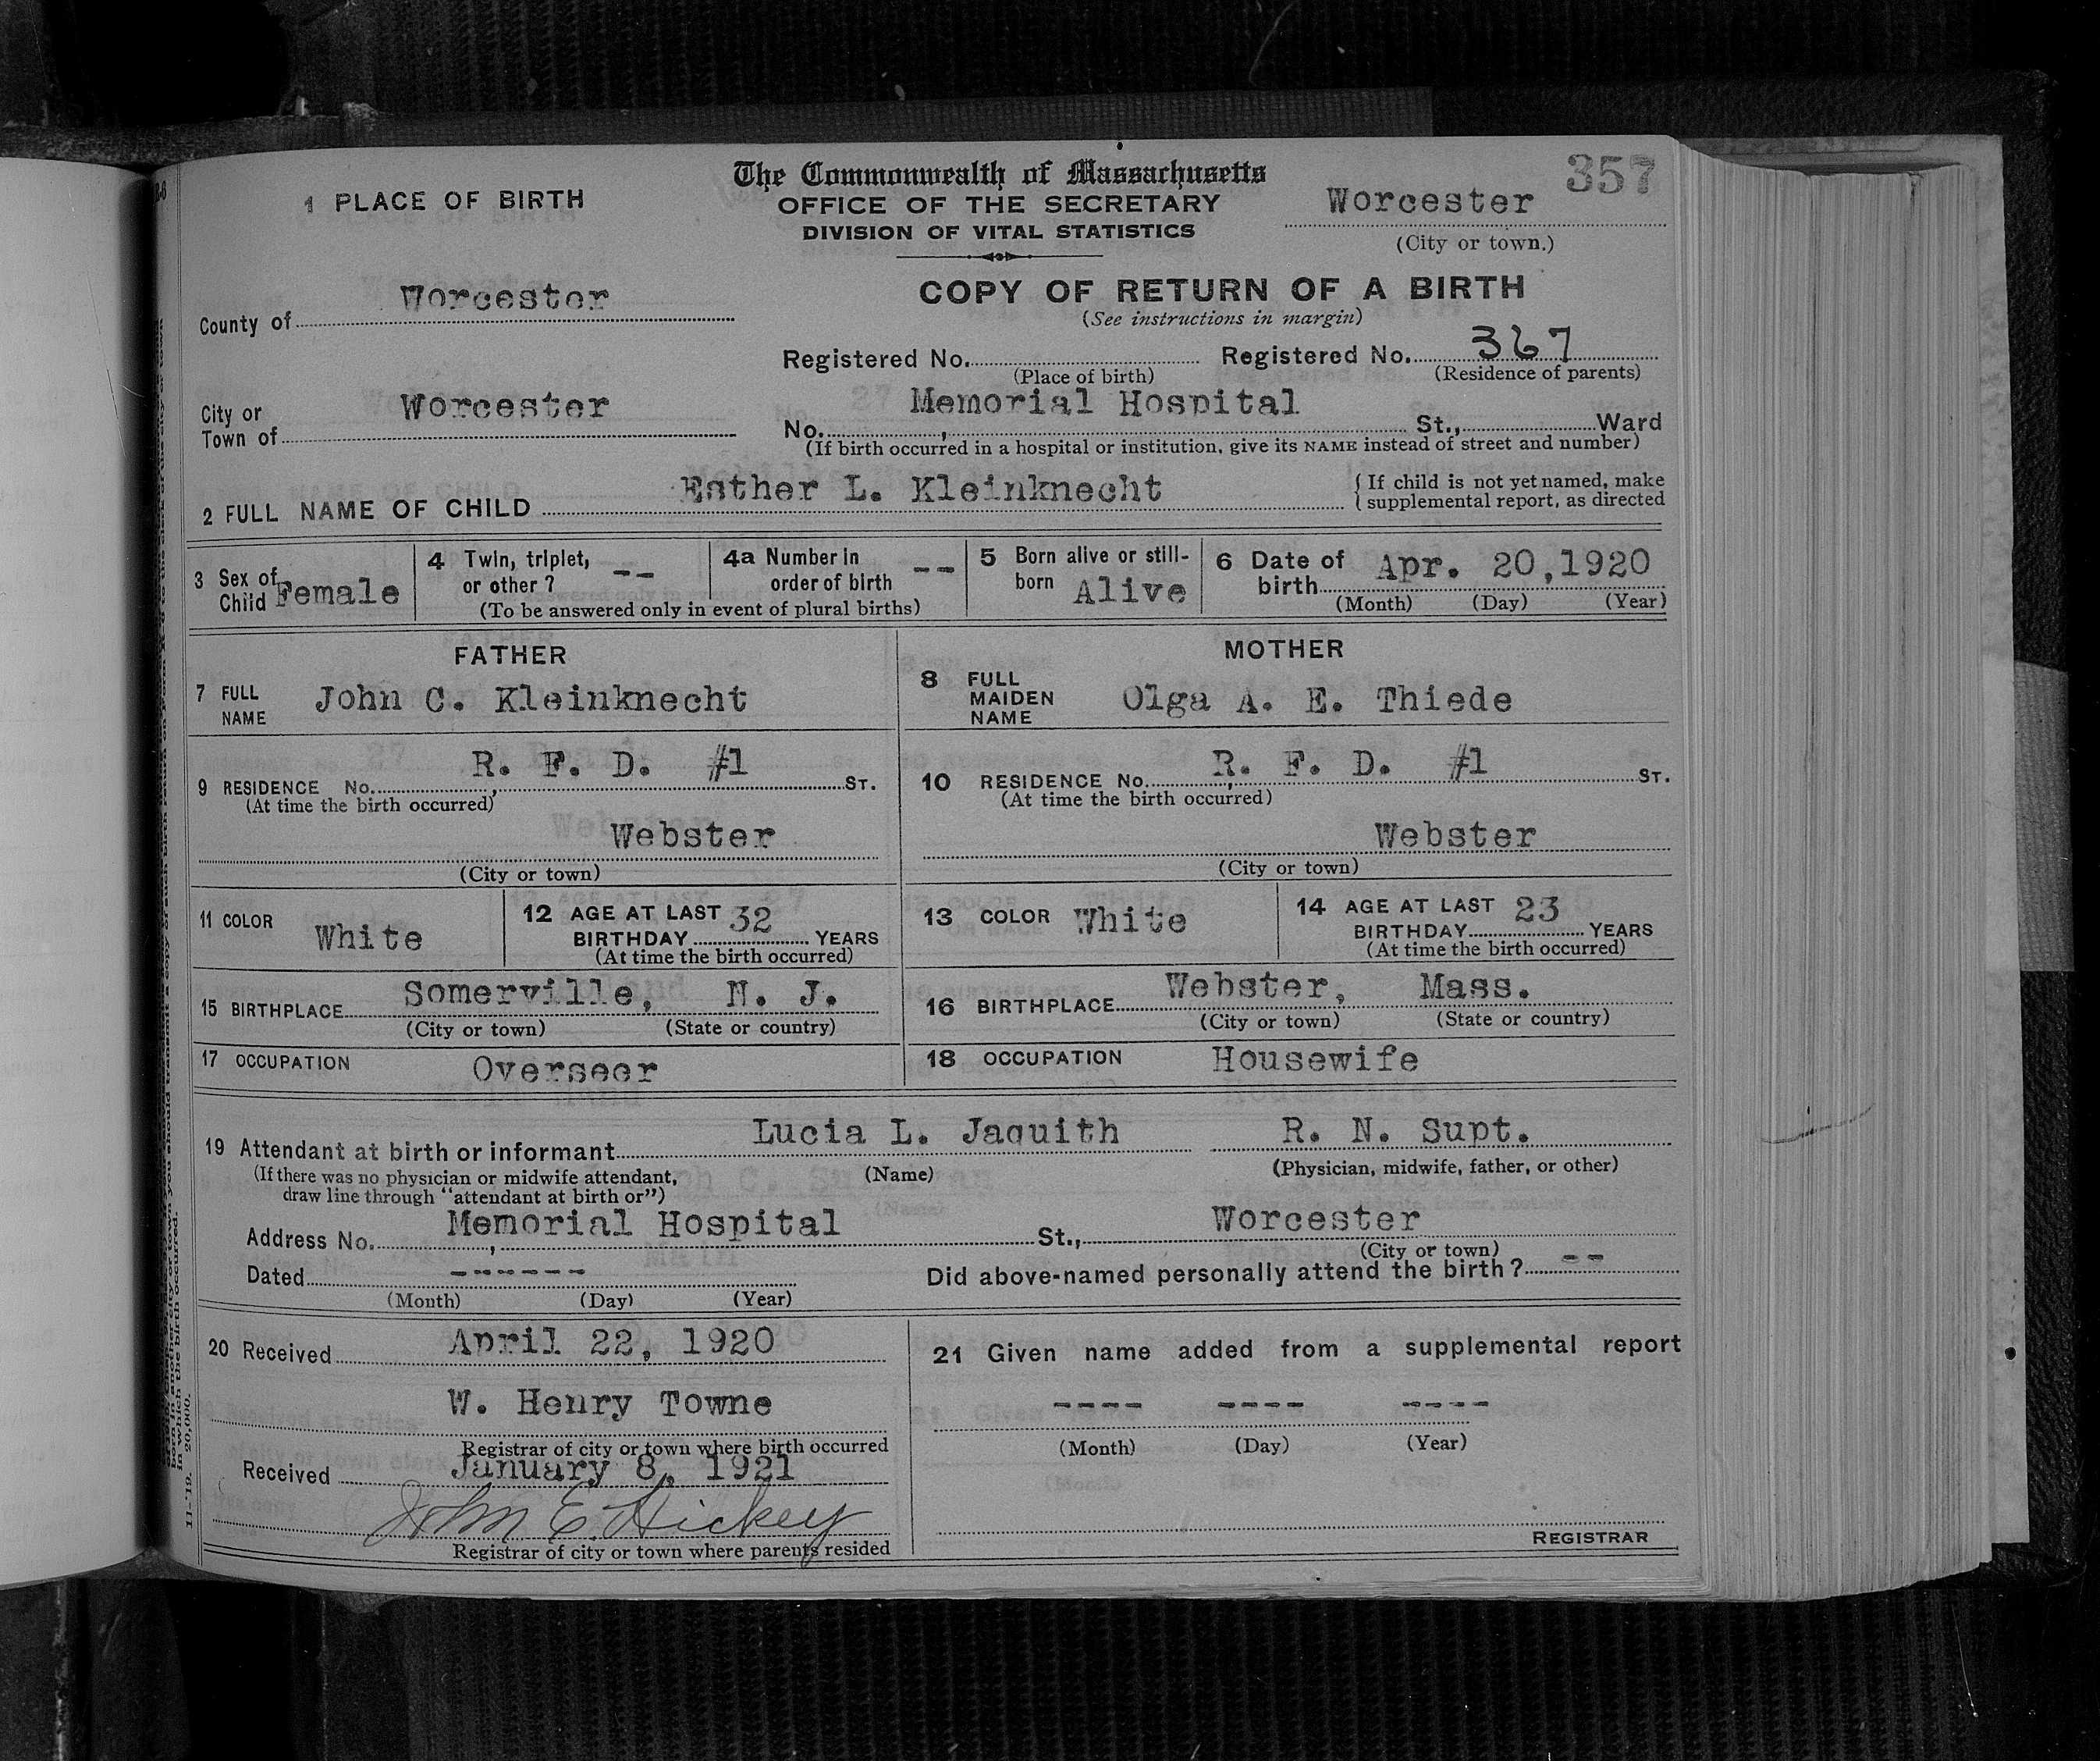 The Commonwealth of Massachusetts
357
1 PLACE OF BIRTH
OFFICE OF THE SECRETARY
Worcester
DIVISION OF VITAL STATISTICS
(City or town.)
County of Worcester
COPY OF RETURN OF A BIRTH
(See instructions in margin)
Registered No. Registered No. 367
(Place of birth) (Residence of parents)
City or Town of Worcester
No. Memorial Hospital St., Ward
(If birth occurred in a hospital or institution, give its NAME instead of street and number)
2 FULL NAME OF CHILD Esther L. Kleinknecht
{ If child is not yet named, make
{ supplemental report, as directed
3 Sex of Child Female
4 Twin, triplet, or other? --
4a Number in order of birth --
(To be answered only in event of plural births)
5 Born alive or still-born Alive
6 Date of birth Apr. 20, 1920
(Month) (Day) (Year)
FATHER
7 FULL NAME John C. Kleinknecht
MOTHER
8 FULL MAIDEN NAME Olga A. E. Thiede
9 RESIDENCE No. R. F. D. #1 ST.
(At time the birth occurred)
Webster
(City or town)
10 RESIDENCE No. R. F. D. #1 ST.
(At time the birth occurred)
Webster
(City or town)
11 COLOR White
12 AGE AT LAST BIRTHDAY 32 YEARS
(At time the birth occurred)
13 COLOR White
14 AGE AT LAST BIRTHDAY 23 YEARS
(At time the birth occurred)
15 BIRTHPLACE Somerville, N. J.
(City or town) (State or country)
16 BIRTHPLACE Webster, Mass.
(City or town) (State or country)
17 OCCUPATION Overseer
18 OCCUPATION Housewife
19 Attendant at birth or informant Lucia L. Jaquith R. N. Supt.
(If there was no physician or midwife attendant, (Name) (Physician, midwife, father, or other)
draw line through "attendant at birth or")
Address No. Memorial Hospital St., Worcester
(City or town)
Dated ------
Did above-named personally attend the birth? --
(Month) (Day) (Year)
20 Received April 22, 1920
W. Henry Towne
Registrar of city or town where birth occurred
Received January 8, 1921
John E. Hickey
Registrar of city or town where parents resided
21 Given name added from a supplemental report
---- ---- ----
(Month) (Day) (Year)
REGISTRAR
in which the birth occurred.
11-'19. 20,000.